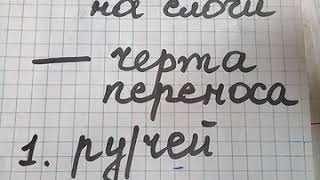 на слоги
— черта
переноса
1. ру/чей